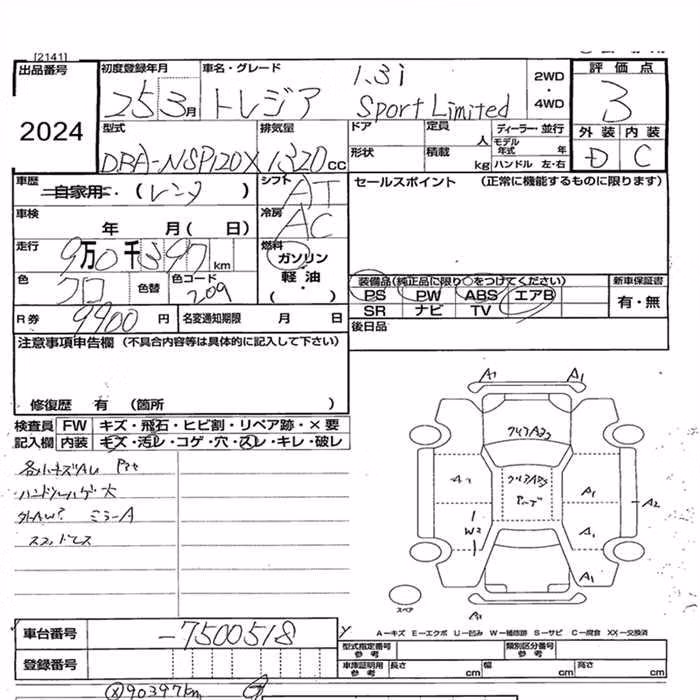 [2141]
出品番号 初度登録年月 車名・グレード 1.3i 2WD ・ 4WD 評価点
2024 25 3月 トレジア Sport Limited 3
型式 排気量 ドア 定員 人 ディーラー・並行 外装 内装
DBA-NSP120X 1320CC 形状 積載 kg モデル年式 年 ハンドル 左・右 D C
車歴 自家用・(レンタ) シフト AT セールスポイント (正常に機能するものに限ります)
車検 年 月(日) 冷房 AC
走行 9万0千397km 燃料 ガソリン
色 クロ 色替 色コード 209 軽油 ・( ) 装備品(純正品に限り○をつけてください) 新車保証書
PS PW ABS エアB 有・無
R券 9900円 名変通知期限 月 日 SR ナビ TV
後日品
注意事項申告欄(不具合内容等は具体的に記入して下さい)
修復歴 有 (箇所 )
検査員 FW キズ・飛石・ヒビ割・リペア跡・×要
記入欄 内装 キズ・汚レ・コゲ・穴・スレ・キレ・破レ
ハンドルハゲ大
ミラーA
A1 A1
A1 A2
W2 A1
A1
スペア
車台番号 -7500518
A－キズ E－エクボ U－凹み W－補修跡 S－サビ C－腐食 XX－交換済
登録番号
型式指定番号 参考 類別区分番号 参考
車庫証明用 参考 長さ cm 幅 cm 高さ cm
90397km